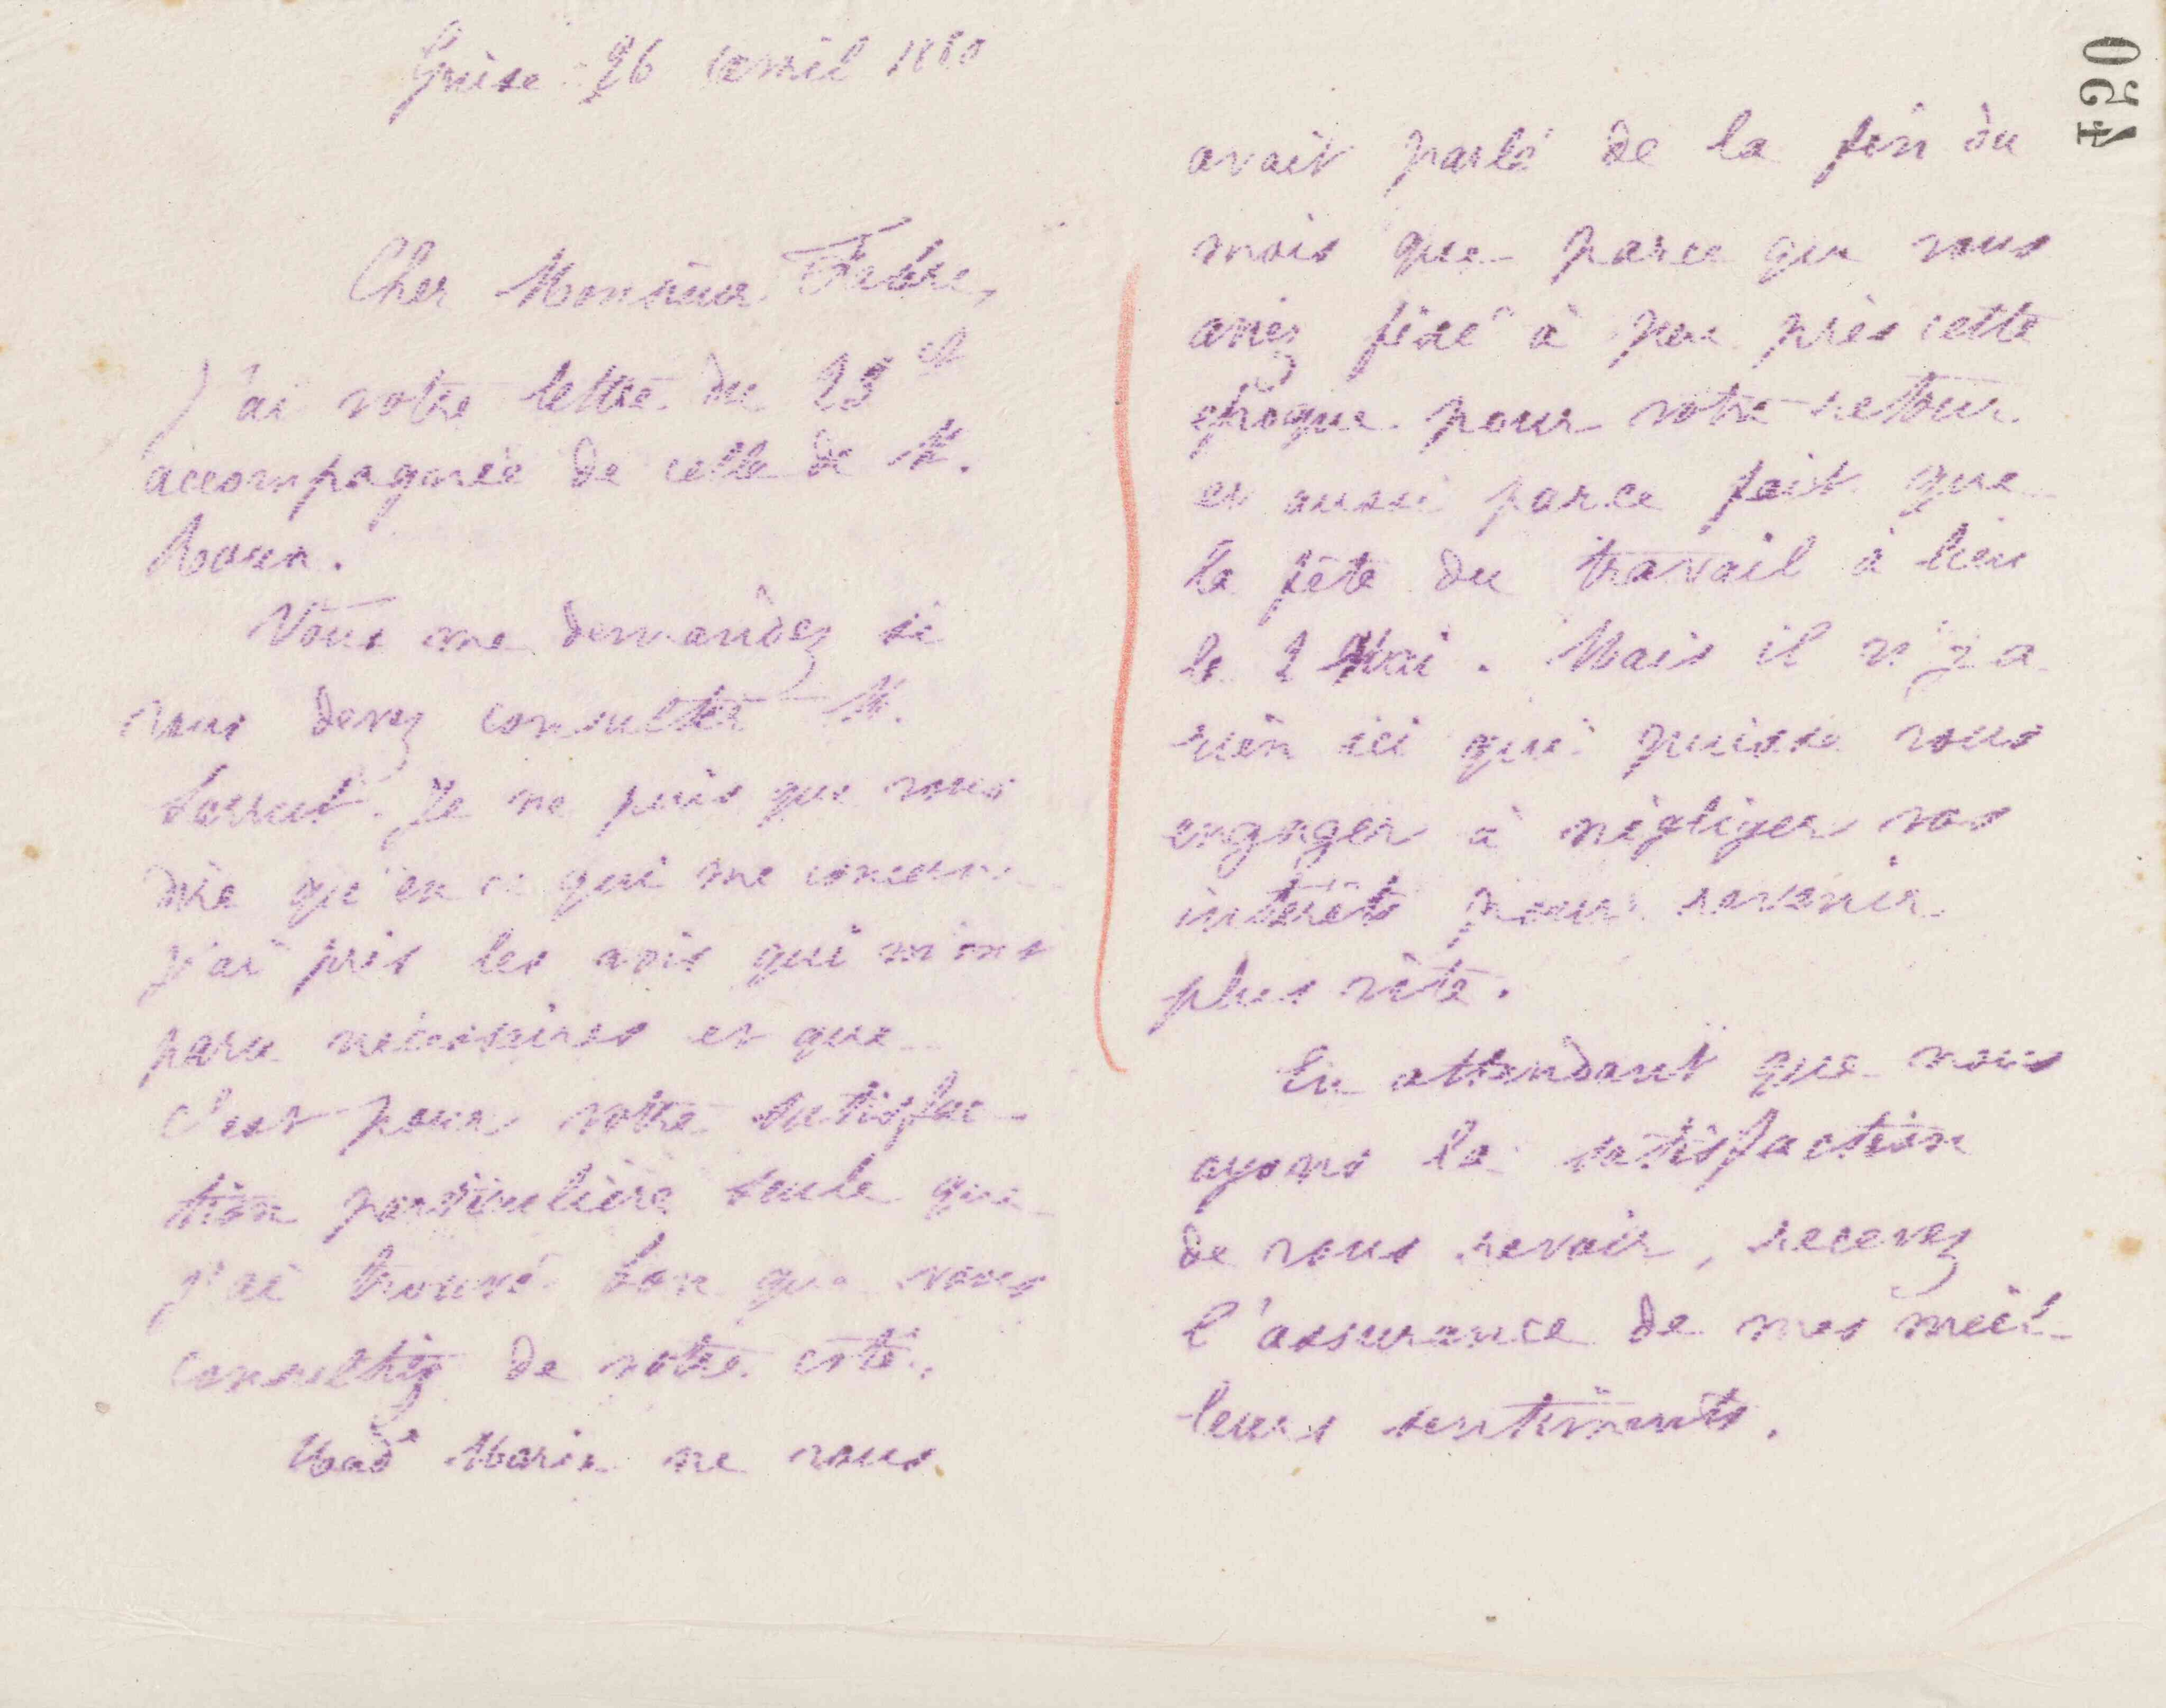 Guise 26 avril 1880
Cher Monsieur Fabre,
J'ai votre lettre du 23 ct
accompagnée de celle de M.
Vous me demandez si
vous devez consulter M.
Je ne puis que vous
dire qu'en ce qui me concerne
j'ai pris les avis qui m'ont
paru nécessaires et que
c'est pour votre satisfac-
tion particulière seule que
j'ai trouvé bon que vous
consultiez de votre côté.
Made Marie ne vous
450
avait parlé de la fin du
mois que parce que vous
aviez fixé à peu près cette
époque pour votre retour
et aussi parce fait que
la fête du travail à lieu
le 2 Mai. Mais il n'y a
rien ici qui puisse vous
engager à négliger vos
intérêts pour revenir
plus vite.
En attendant que nous
ayons la satisfaction
de vous revoir, recevez
l'assurance de mes meil-
leurs sentiments.